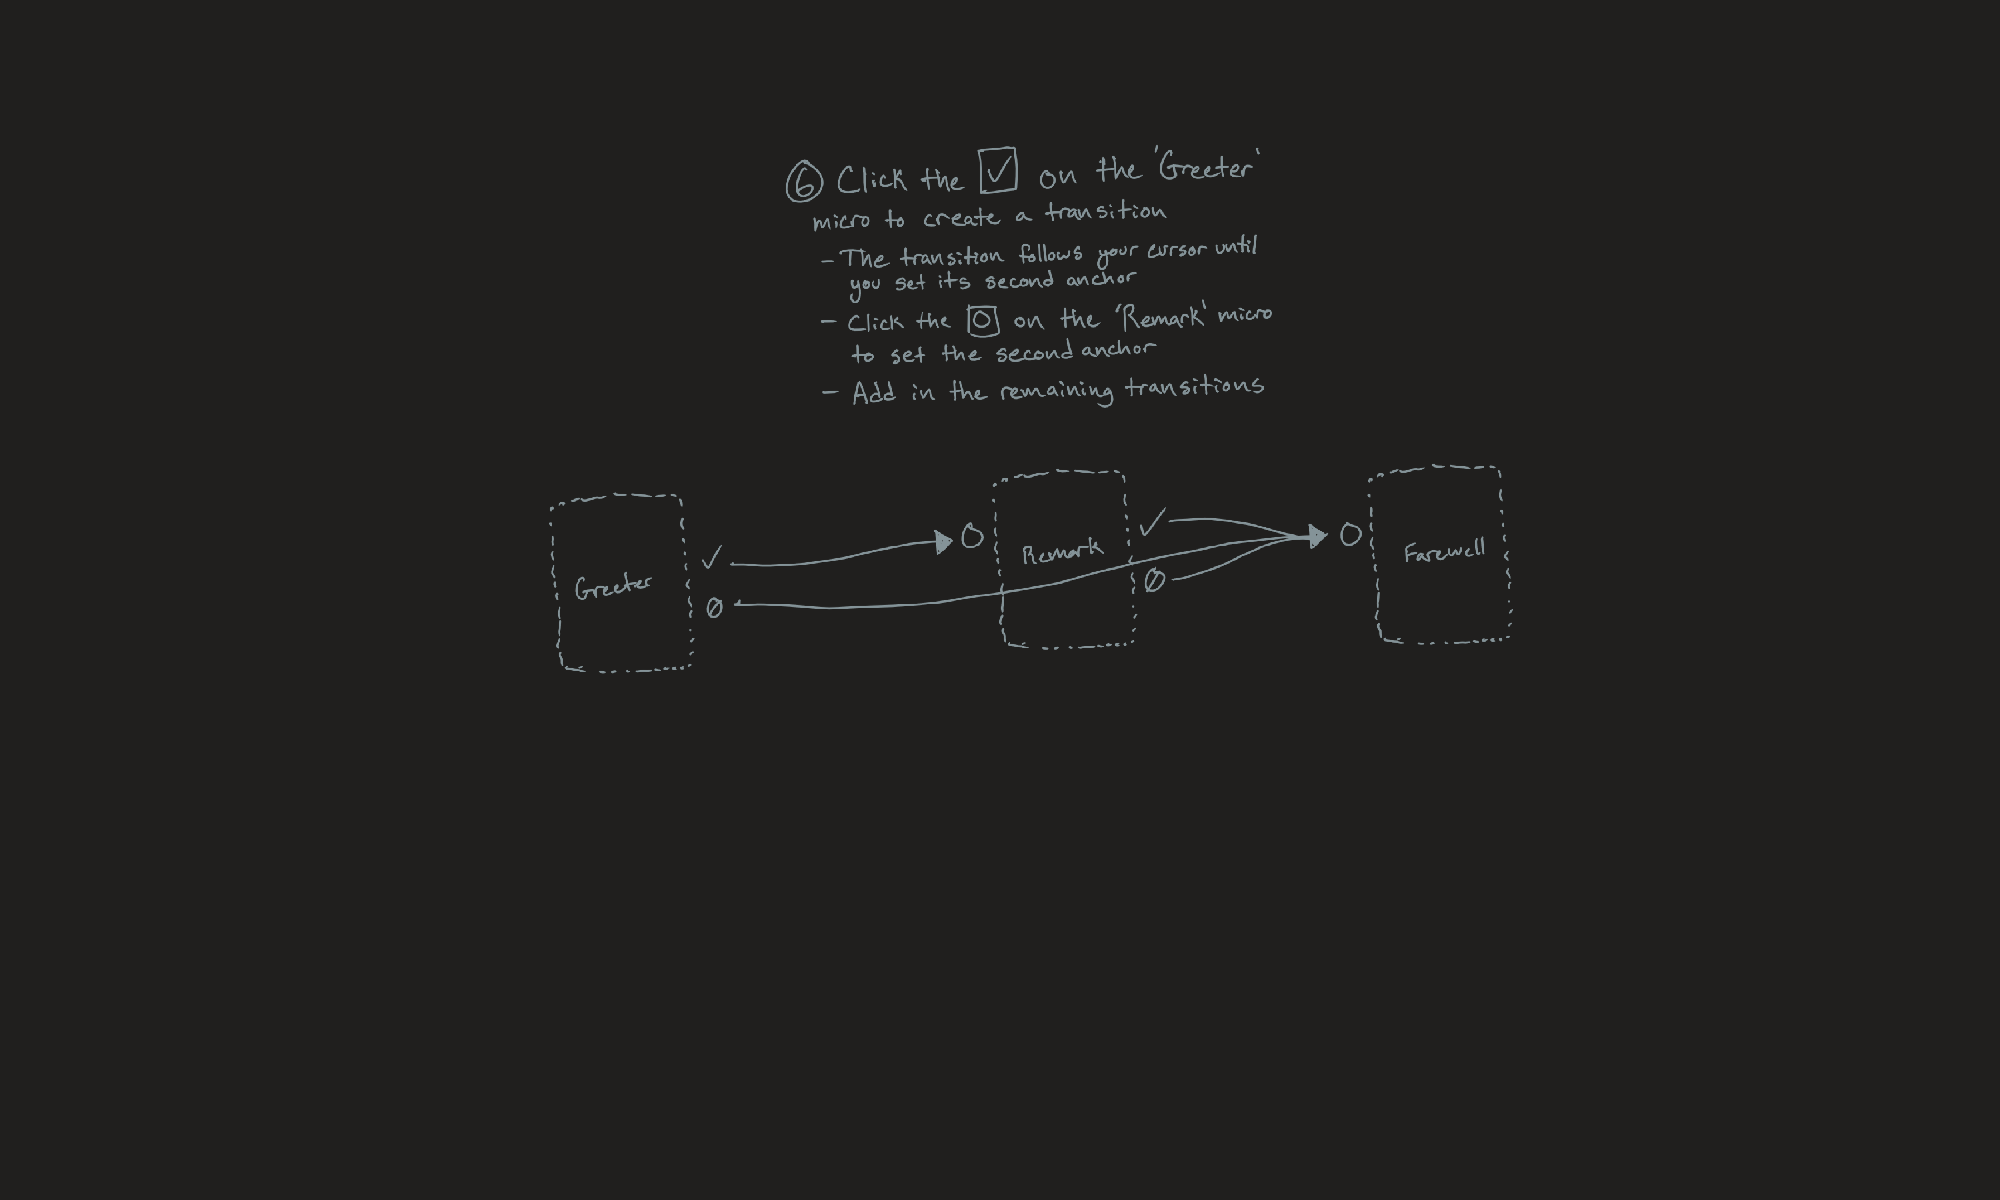 6 Click the ✓ on the 'Greeter'
micro to create a transition
- The transition follows your cursor until
you set its second anchor
- Click the O on the 'Remark' micro
to set the second anchor
- Add in the remaining transitions
Greeter
Remark
Farewell